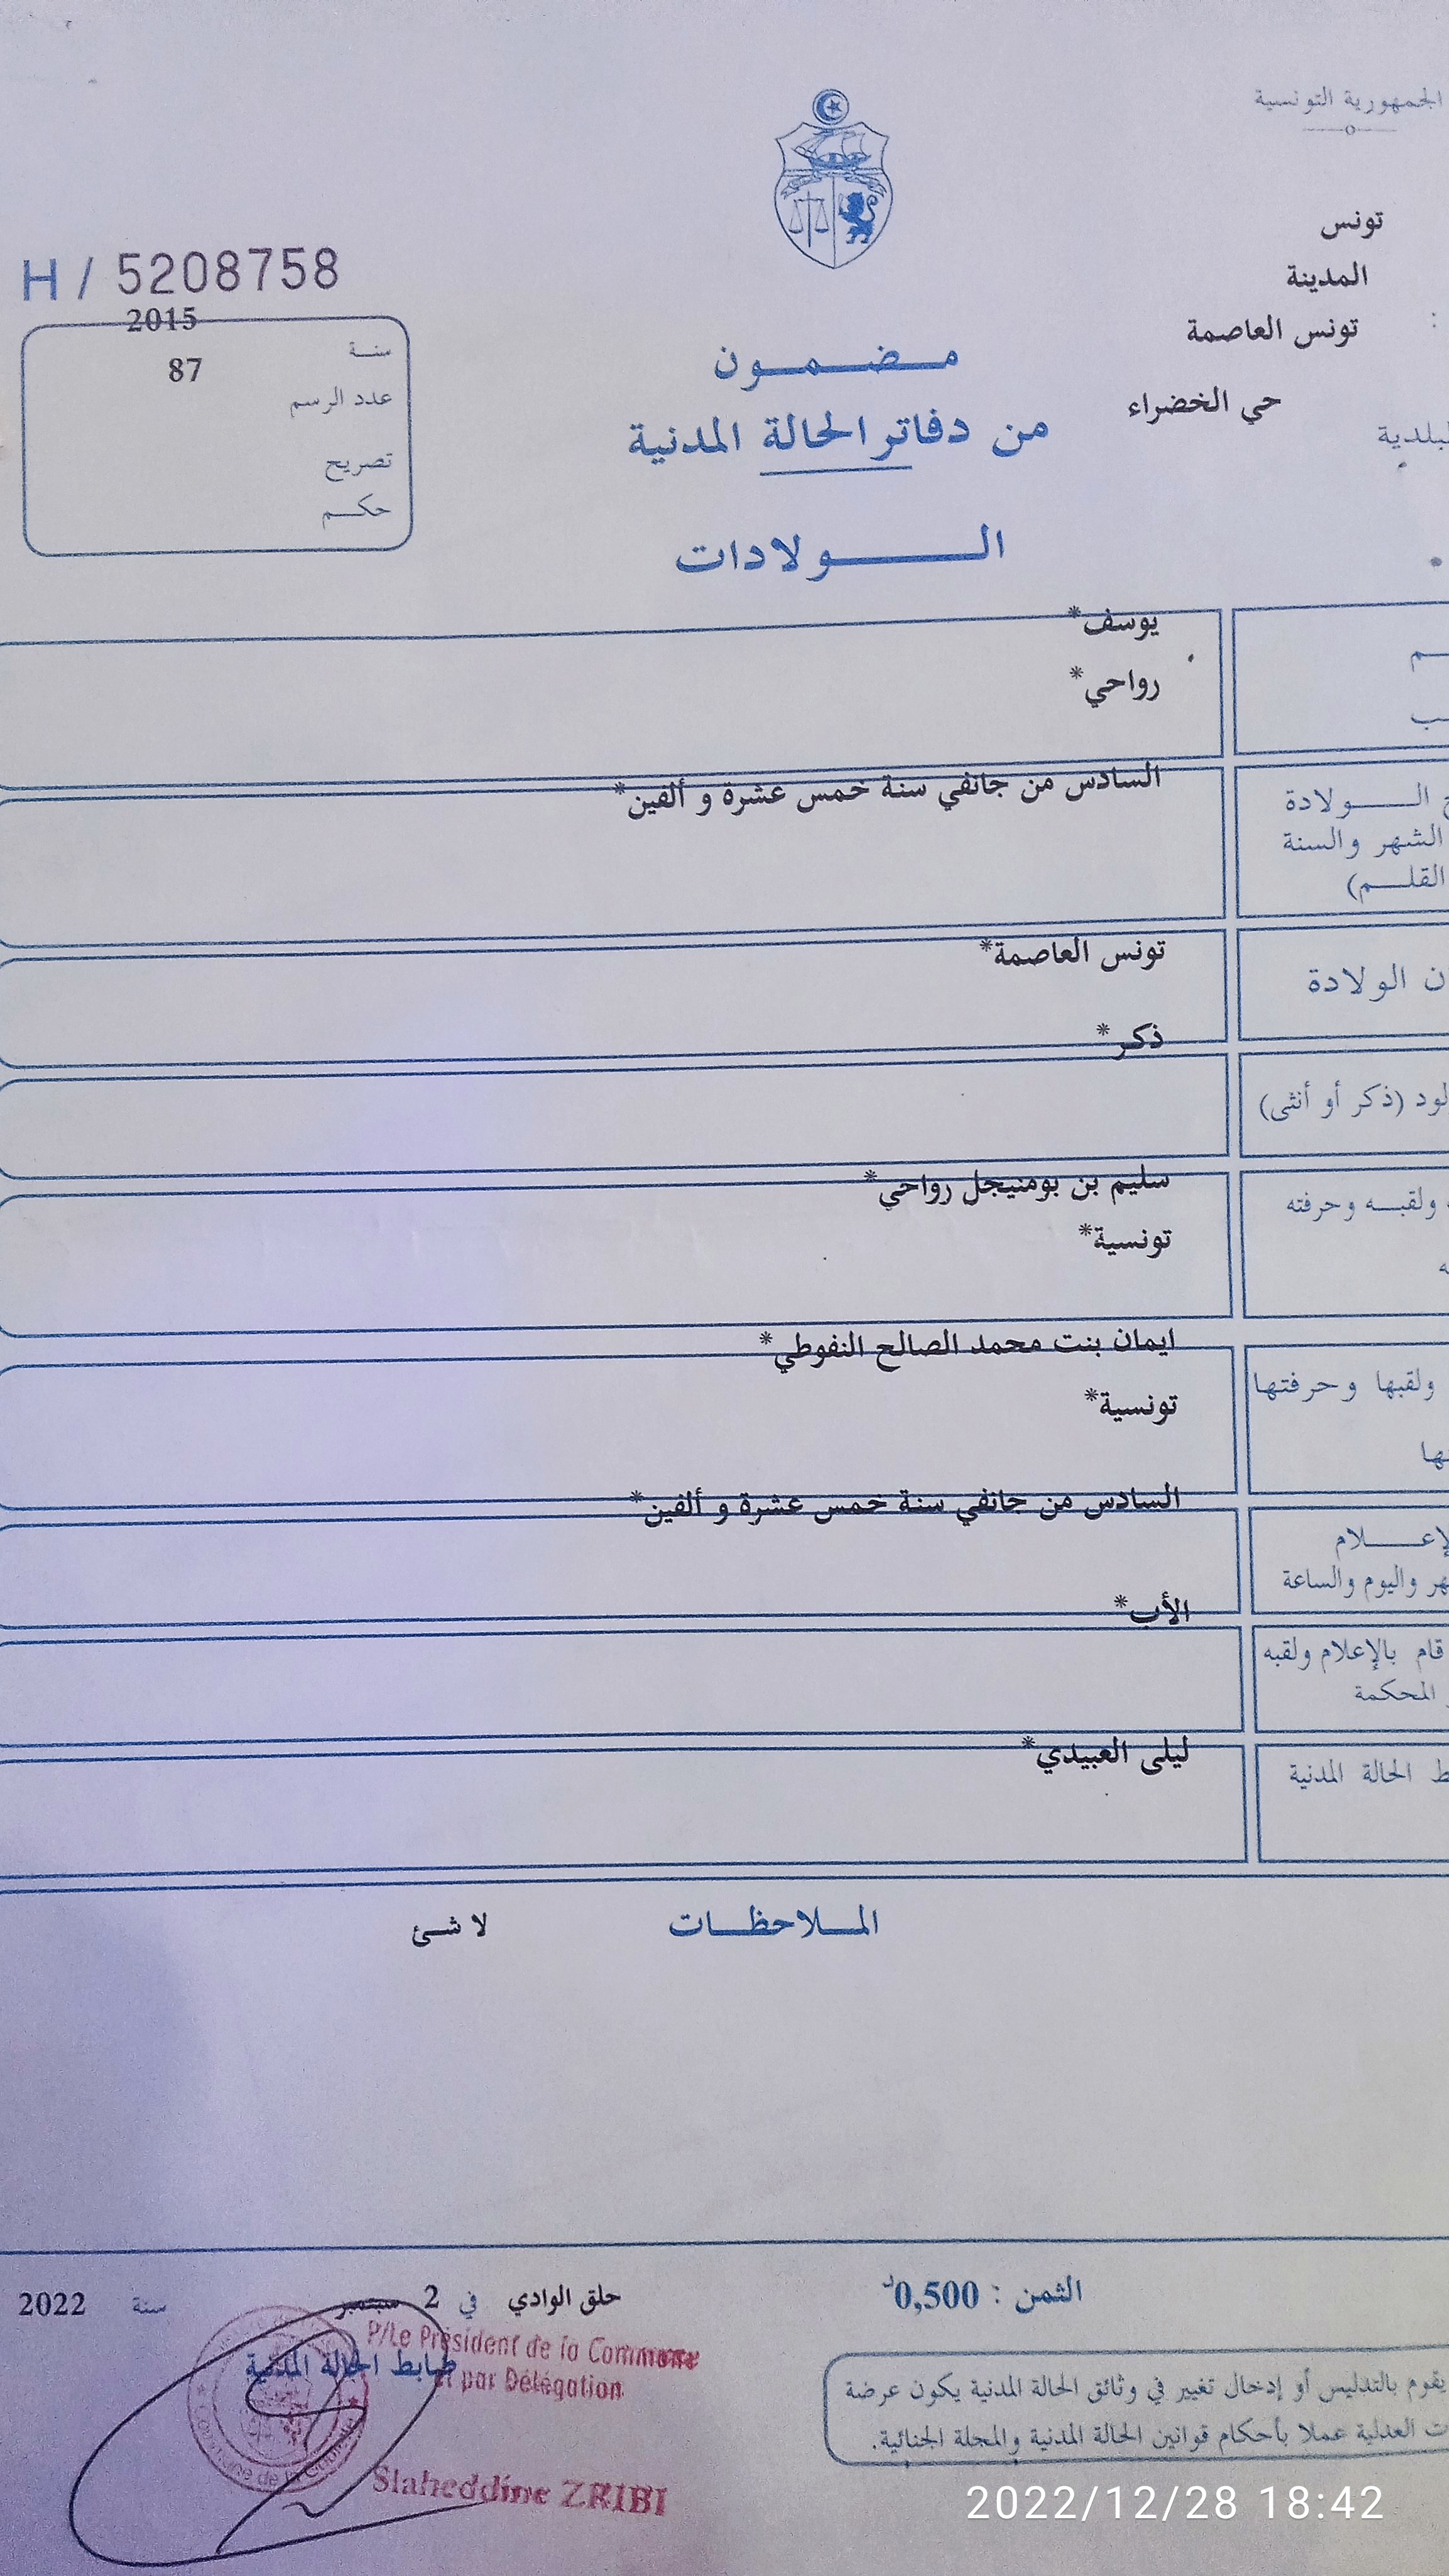 الجمهورية التونسية
تونس
المدينة
تونس العاصمة
حي الخضراء
H / 5208758
2015
سنة
87
عدد الرسم
تصريح
حكم
مضمون
من دفاتر الحالة المدنية
الولادات
يوسف*
رواحي*
السادس من جانفي سنة خمس عشرة و ألفين*
الولادة
الشهر والسنة
القلم)
تونس العاصمة*
ن الولادة
ذكر*
لود (ذكر أو أنثى)
سليم بن بومنيجل رواحي*
ولقبه وحرفته
تونسية*
ايمان بنت محمد الصالح النفوطي*
ولقبها وحرفتها
تونسية*
ها
السادس من جانفي سنة خمس عشرة و ألفين*
لإعلام
هر واليوم والساعة
الأب*
قام بالإعلام ولقبه
المحكمة
ليلى العبيدي*
ط الحالة المدنية
الملاحظات لا شئ
الثمن : 0,500د
حلق الوادي في 2 سبتمبر سنة 2022
ضابط الحالة المدنية
P/Le Président de la Commune
et par Délégation
Slaheddine ZRIBI
يقوم بالتدليس أو إدخال تغيير في وثائق الحالة المدنية يكون عرضة
ت العدلية عملا بأحكام قوانين الحالة المدنية والمجلة الجنائية.
2022/12/28 18:42